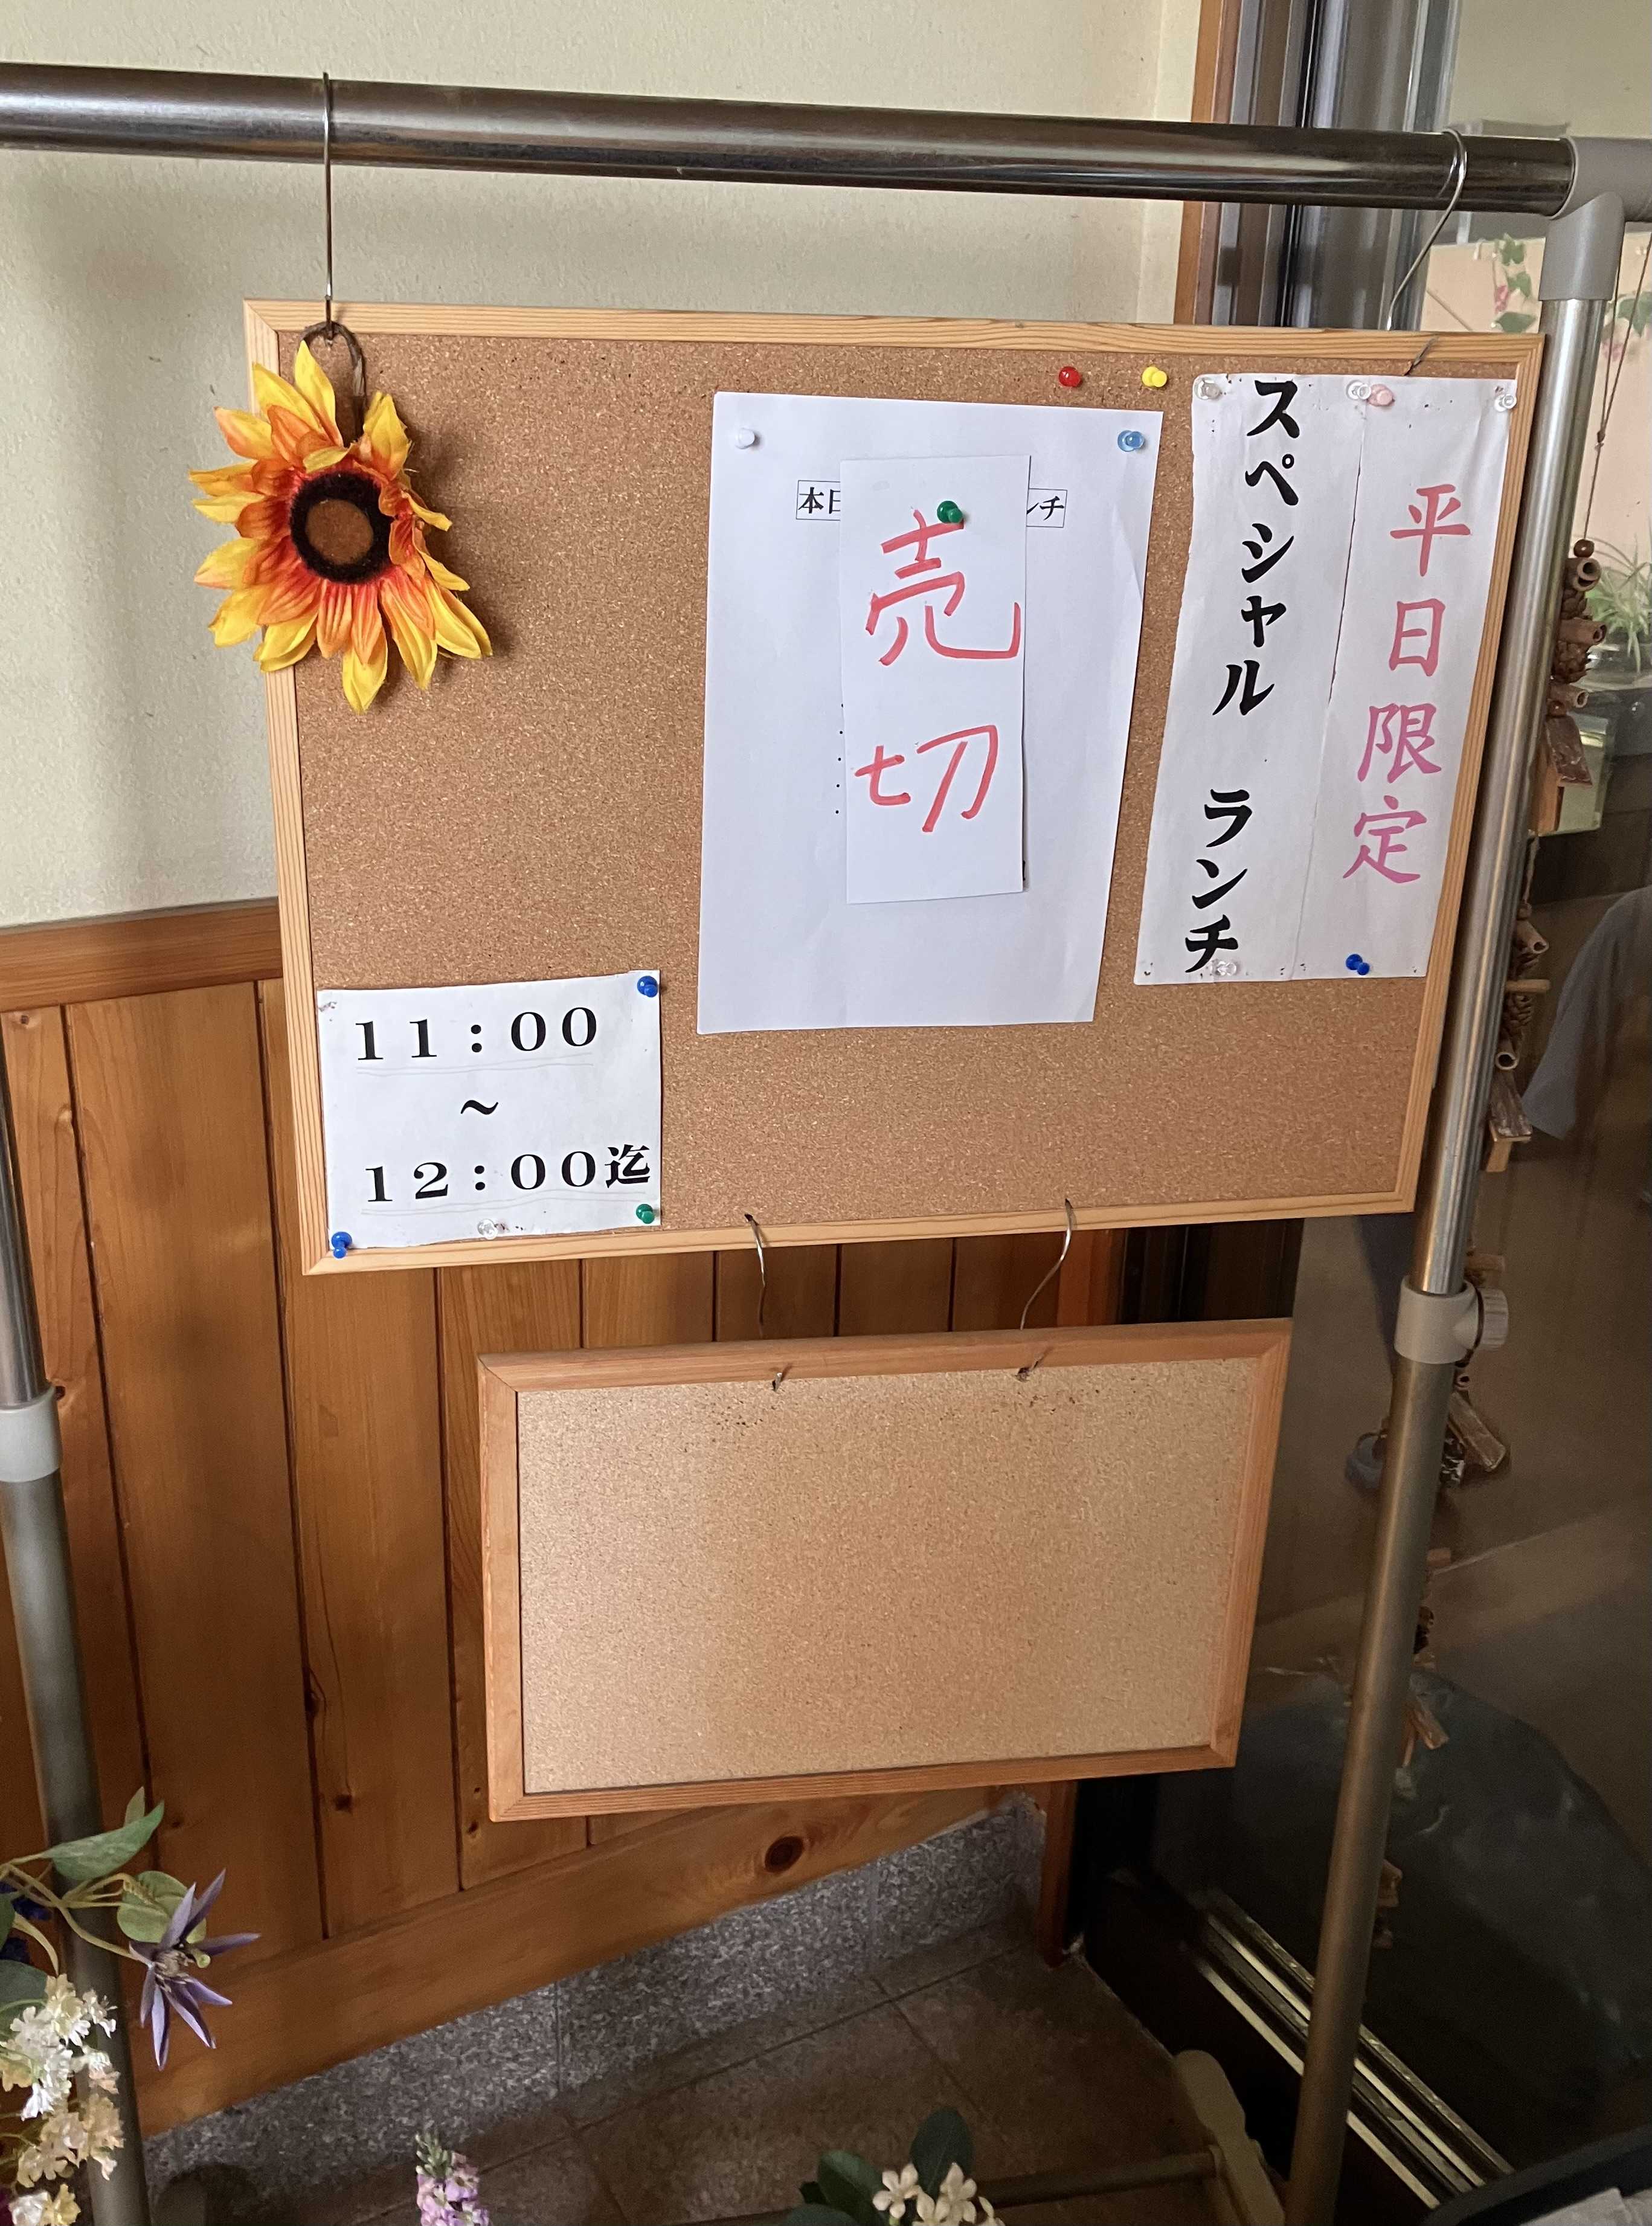 平日限定
スペシャル ランチ
本日
ンチ
売切
11:00
~
12:00迄